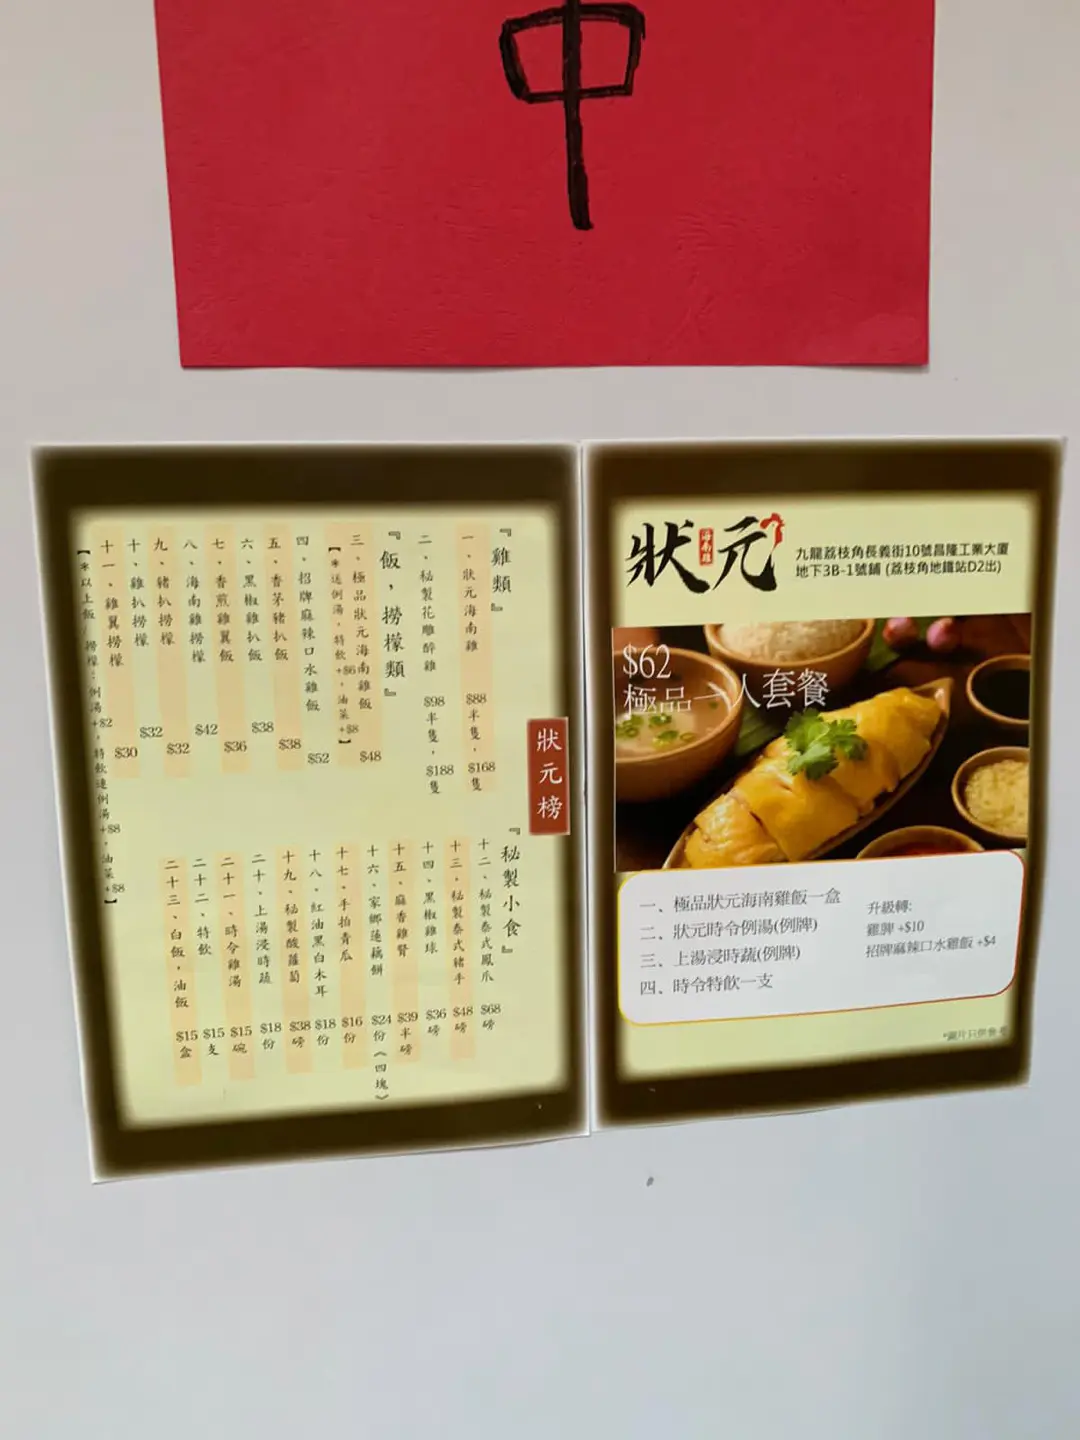 中
『雞類』
一、狀元海南雞 $88半隻，$168隻
二、秘製花雕醉雞 $98半隻，$188隻
『飯，撈檬類』
三、極品狀元海南雞飯 $48
【*送例湯，特飲+$6，油菜+$8】
四、招牌麻辣口水雞飯 $52
五、香茅豬扒飯 $38
六、黑椒雞扒飯 $38
七、香煎雞翼飯 $36
八、海南雞撈檬 $42
九、豬扒撈檬 $32
十、雞扒撈檬 $32
十一、雞翼撈檬 $30
【*以上飯/撈檬：例湯+$2，特飲連例湯+$8，油菜+$8】
狀元榜
『秘製小食』
十二、秘製泰式鳳爪 $68磅
十三、秘製泰式豬手 $48磅
十四、黑椒雞球 $36磅
十五、麻香雞腎 $39半磅
十六、家鄉蓮藕餅 $24份《四塊》
十七、手拍青瓜 $16份
十八、紅油黑白木耳 $18份
十九、秘製酸蘿蔔 $38磅
二十、上湯浸時蔬 $18份
二十一、時令雞湯 $15碗
二十二、特飲 $15支
二十三、白飯，油飯 $15盒
狀元
海南雞
九龍荔枝角長義街10號昌隆工業大廈
地下3B-1號鋪 (荔枝角地鐵站D2出)
$62
極品一人套餐
一、極品狀元海南雞飯一盒
二、狀元時令例湯(例牌)
三、上湯浸時蔬(例牌)
四、時令特飲一支
升級轉:
雞髀 +$10
招牌麻辣口水雞飯 +$4
*圖片只供參考